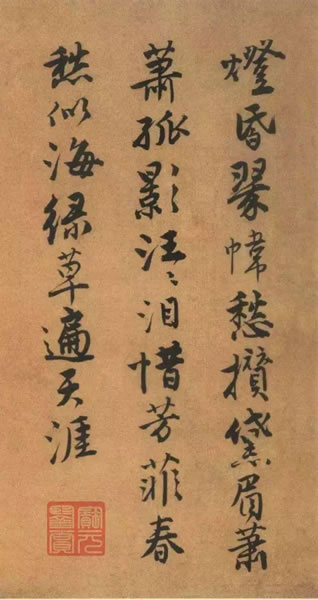 燈昏翠幃愁攢黛眉蕭
蕭孤影汪〻泪惜芳菲春
愁似海綠草遍天涯